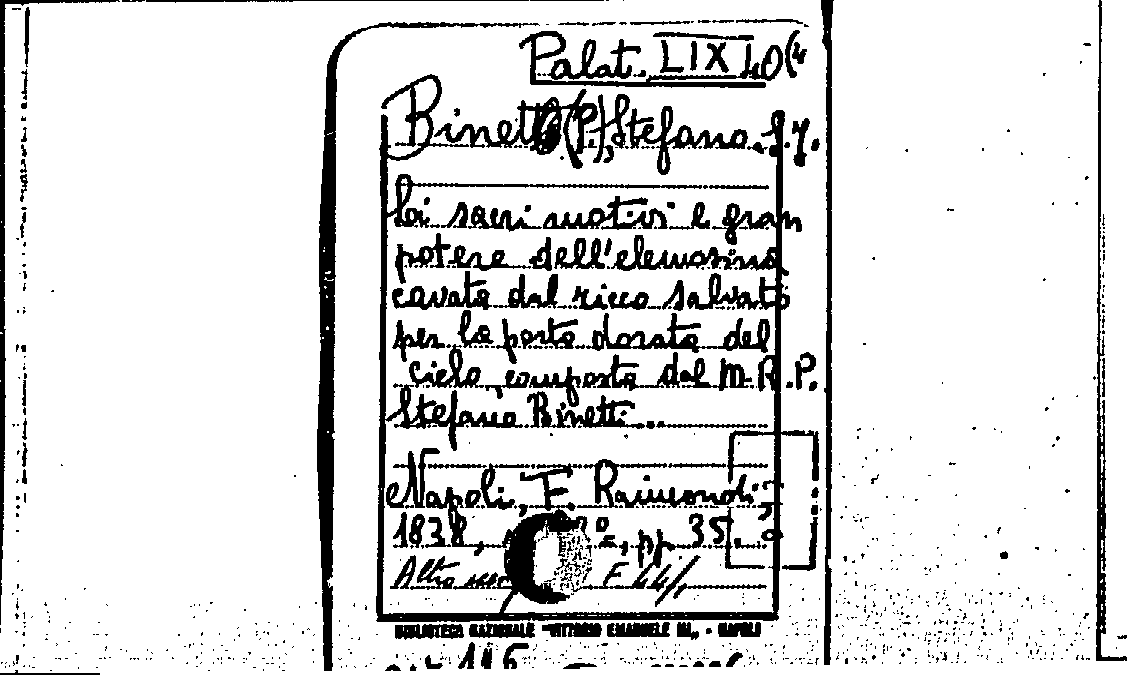 Palat. LIX 40(4
Binetti (P.), Stefano. S.J.
Lai sacri motivi e gran
potere dell'elemosina
cavata dal ricco salvato
per la porta dorata del
cielo, composta dal M.R.P.
Stefano Binetti...
Napoli, F. Raimondi,
1838, pp. 35.
Altro F 44/
BIBLIOTECA NAZIONALE "VITTORIO EMANUELE III" - NAPOLI